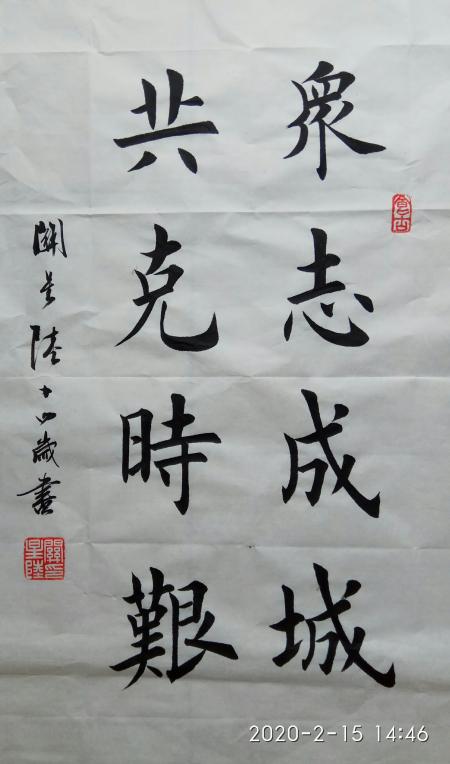 衆志成城
共克時艱
關星陸十四歲書
關印星陸
2020-2-15 14:46